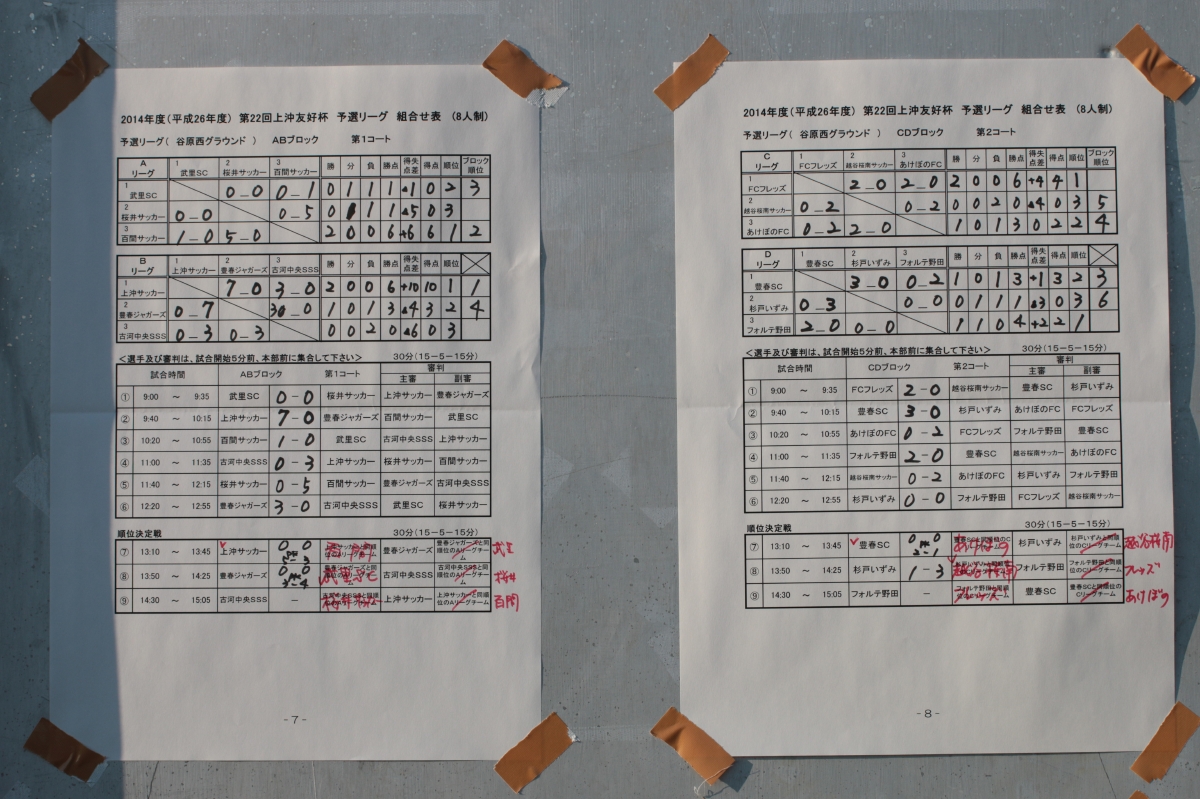 2014年度(平成26年度) 第22回上沖友好杯 予選リーグ 組合せ表 (8人制)
予選リーグ( 谷原西グラウンド ) ABブロック 第1コート
A リーグ 1 武里SC 2 桜井サッカー 3 百間サッカー 勝 分 負 勝点 得失点差 得点 順位 ブロック順位
1 武里SC 0-0 0-1 0 1 1 1 -1 0 2 3
2 桜井サッカー 0-0 0-5 0 1 1 1 -5 0 3
3 百間サッカー 1-0 5-0 2 0 0 6 +6 6 1 2
B リーグ 1 上沖サッカー 2 豊春ジャガーズ 3 古河中央SSS 勝 分 負 勝点 得失点差 得点 順位
1 上沖サッカー 7-0 3-0 2 0 0 6 +10 10 1 1
2 豊春ジャガーズ 0-7 3-0 1 0 1 3 -4 3 2 4
3 古河中央SSS 0-3 0-3 0 0 2 0 -6 0 3
<選手及び審判は、試合開始5分前、本部前に集合して下さい> 30分(15-5-15分)
試合時間 ABブロック 第1コート 審判
主審 副審
① 9:00 ～ 9:35 武里SC 0-0 桜井サッカー 上沖サッカー 豊春ジャガーズ
② 9:40 ～ 10:15 上沖サッカー 7-0 豊春ジャガーズ 百間サッカー 武里SC
③ 10:20 ～ 10:55 百間サッカー 1-0 武里SC 古河中央SSS 上沖サッカー
④ 11:00 ～ 11:35 古河中央SSS 0-3 上沖サッカー 桜井サッカー 百間サッカー
⑤ 11:40 ～ 12:15 桜井サッカー 0-5 百間サッカー 豊春ジャガーズ 古河中央SSS
⑥ 12:20 ～ 12:55 豊春ジャガーズ 3-0 古河中央SSS 武里SC 桜井サッカー
順位決定戦 30分(15-5-15分)
⑦ 13:10 ～ 13:45 上沖サッカー 0 0 PK 豊春ジャガーズ 豊春ジャガーズと同順位のAリーグチーム 武里
⑧ 13:50 ～ 14:25 豊春ジャガーズ 0 0 PK 3-4 武里SC 古河中央SSS 古河中央SSSと同順位のAリーグチーム 桜井
⑨ 14:30 ～ 15:05 古河中央SSS - 上沖サッカー 上沖サッカーと同順位のAリーグチーム 百間
-7-
2014年度(平成26年度) 第22回上沖友好杯 予選リーグ 組合せ表 (8人制)
予選リーグ( 谷原西グラウンド ) CDブロック 第2コート
C リーグ 1 FCフレッズ 2 越谷桜南サッカー 3 あけぼのFC 勝 分 負 勝点 得失点差 得点 順位 ブロック順位
1 FCフレッズ 2-0 2-0 2 0 0 6 +4 4 1
2 越谷桜南サッカー 0-2 0-2 0 0 2 0 -4 0 3 5
3 あけぼのFC 0-2 2-0 1 0 1 3 0 2 2 4
D リーグ 1 豊春SC 2 杉戸いずみ 3 フォルテ野田 勝 分 負 勝点 得失点差 得点 順位
1 豊春SC 3-0 0-2 1 0 1 3 +1 3 2 3
2 杉戸いずみ 0-3 0-0 0 1 1 1 -3 0 3 6
3 フォルテ野田 2-0 0-0 1 1 0 4 +2 2 1
<選手及び審判は、試合開始5分前、本部前に集合して下さい> 30分(15-5-15分)
試合時間 CDブロック 第2コート 審判
主審 副審
① 9:00 ～ 9:35 FCフレッズ 2-0 越谷桜南サッカー 豊春SC 杉戸いずみ
② 9:40 ～ 10:15 豊春SC 3-0 杉戸いずみ あけぼのFC FCフレッズ
③ 10:20 ～ 10:55 あけぼのFC 0-2 FCフレッズ フォルテ野田 豊春SC
④ 11:00 ～ 11:35 フォルテ野田 2-0 豊春SC 越谷桜南サッカー あけぼのFC
⑤ 11:40 ～ 12:15 越谷桜南サッカー 0-2 あけぼのFC 杉戸いずみ フォルテ野田
⑥ 12:20 ～ 12:55 杉戸いずみ 0-0 フォルテ野田 FCフレッズ 越谷桜南サッカー
順位決定戦 30分(15-5-15分)
⑦ 13:10 ～ 13:45 豊春SC 0 0 PK 2-1 あけぼの 杉戸いずみ 杉戸いずみと同順位のCリーグチーム 越谷桜南
⑧ 13:50 ～ 14:25 杉戸いずみ 1-3 越谷桜南 フォルテ野田 フォルテ野田と同順位のCリーグチーム フレッズ
⑨ 14:30 ～ 15:05 フォルテ野田 - フォルテ野田と同順位のCリーグチーム 豊春SC 豊春SCと同順位のCリーグチーム あけぼの
-8-